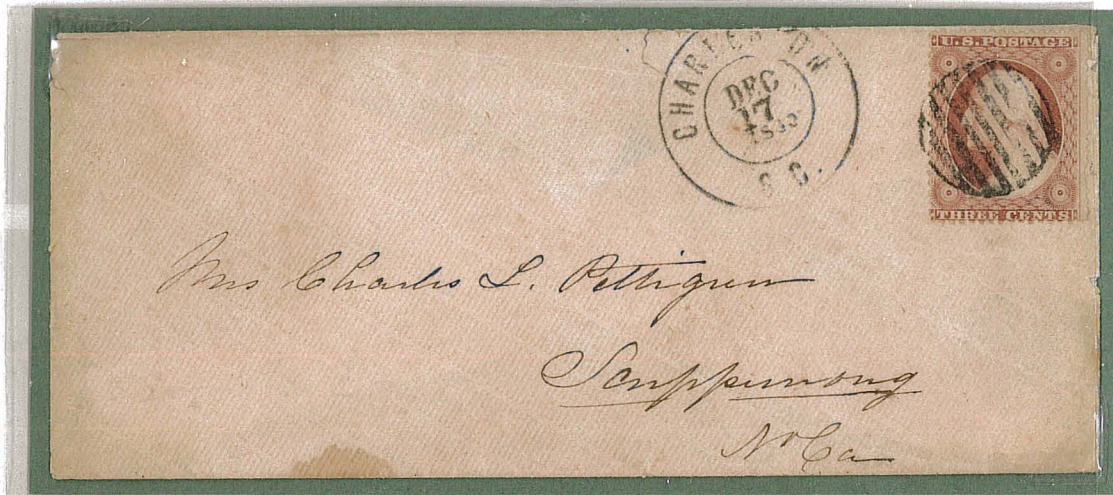 CHARLESTON
DEC
17
S C.
U.S. POSTAGE
THREE CENTS
Mrs Charles L. Pettigrew
Scuppernong
No Ca